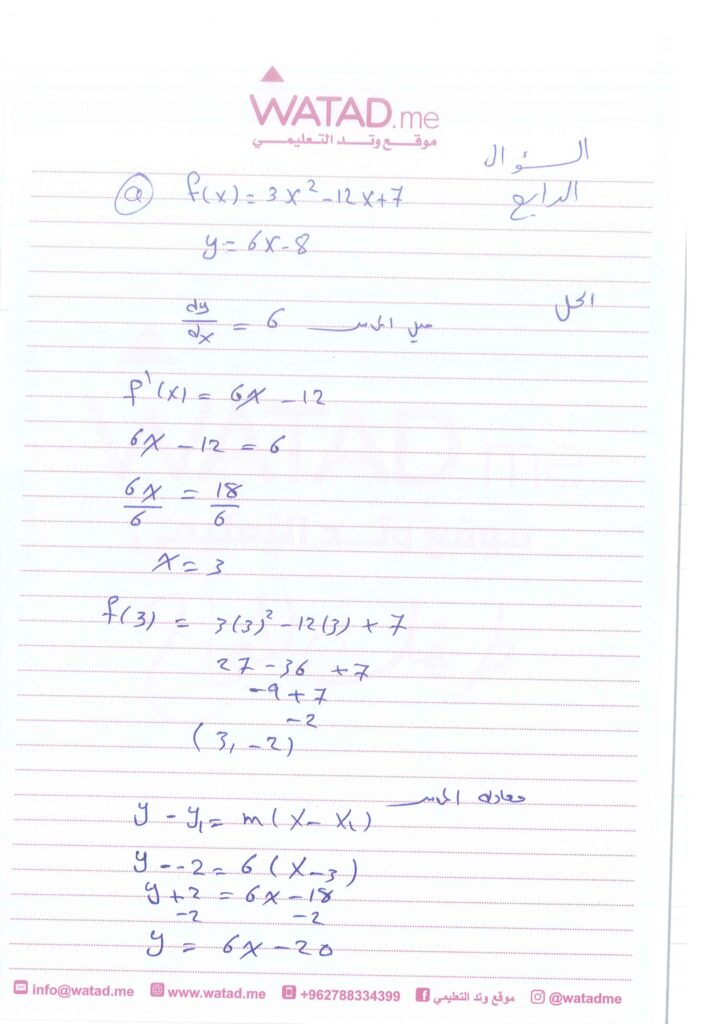 WATAD.me
موقع وتد التعليمي
السؤال
الرابع
a f(x) = 3x² - 12x + 7
y = 6x - 8
الحل
dy/dx = 6 ميل المماس
f'(x) = 6x - 12
6x - 12 = 6
6x/6 = 18/6
x = 3
f(3) = 3(3)² - 12(3) + 7
27 - 36 + 7
-9 + 7
-2
(3, -2)
معادلة المماس
y - y₁ = m(x - x₁)
y - -2 = 6(x - 3)
y + 2 = 6x - 18
-2 -2
y = 6x - 20
info@watad.me www.watad.me +962788334399 موقع وتد التعليمي @watadme